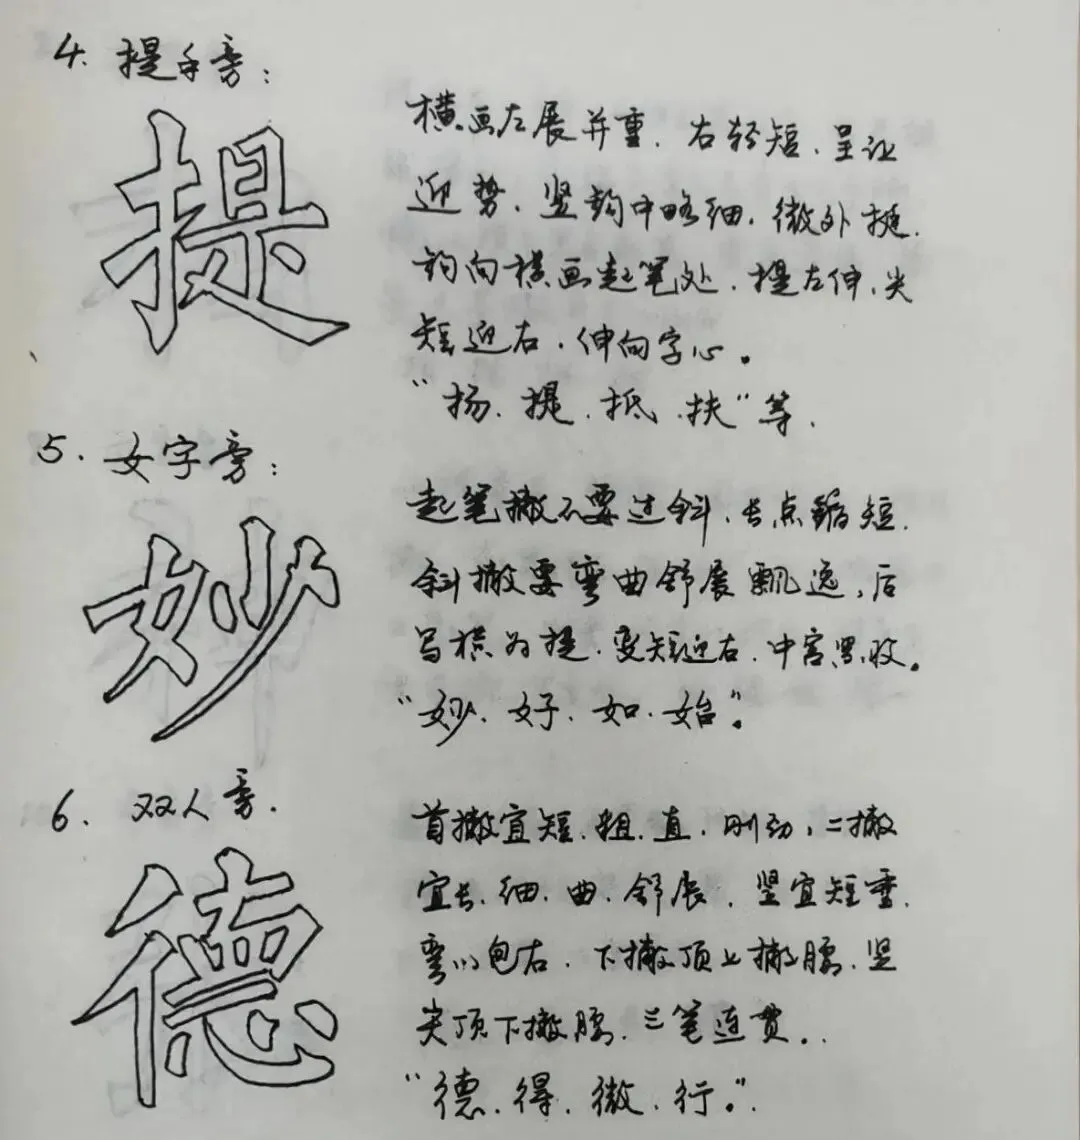 4. 提手旁：
提
横画左展并重．右轻短．呈让
迎势．竖钩中略细．微外挺．
钩向横画起笔处．提左伸．尖
短迎右．伸向字心。
“扬．提．抵．扶”等．
5. 女字旁：
妙
起笔撇不要过斜．长点缩短．
斜撇要弯曲舒展飘逸，后
写横为提．变短迎右．中宫紧收。
“妙．好．如．始”。
6. 双人旁．
德
首撇宜短．粗．直．刚劲，二撇
宜长．细．曲．舒展．竖宜短重．
弯以包右．下撇顶上撇腰．竖
尖顶下撇腰．三笔连贯。．
“德．得．微．行。”．